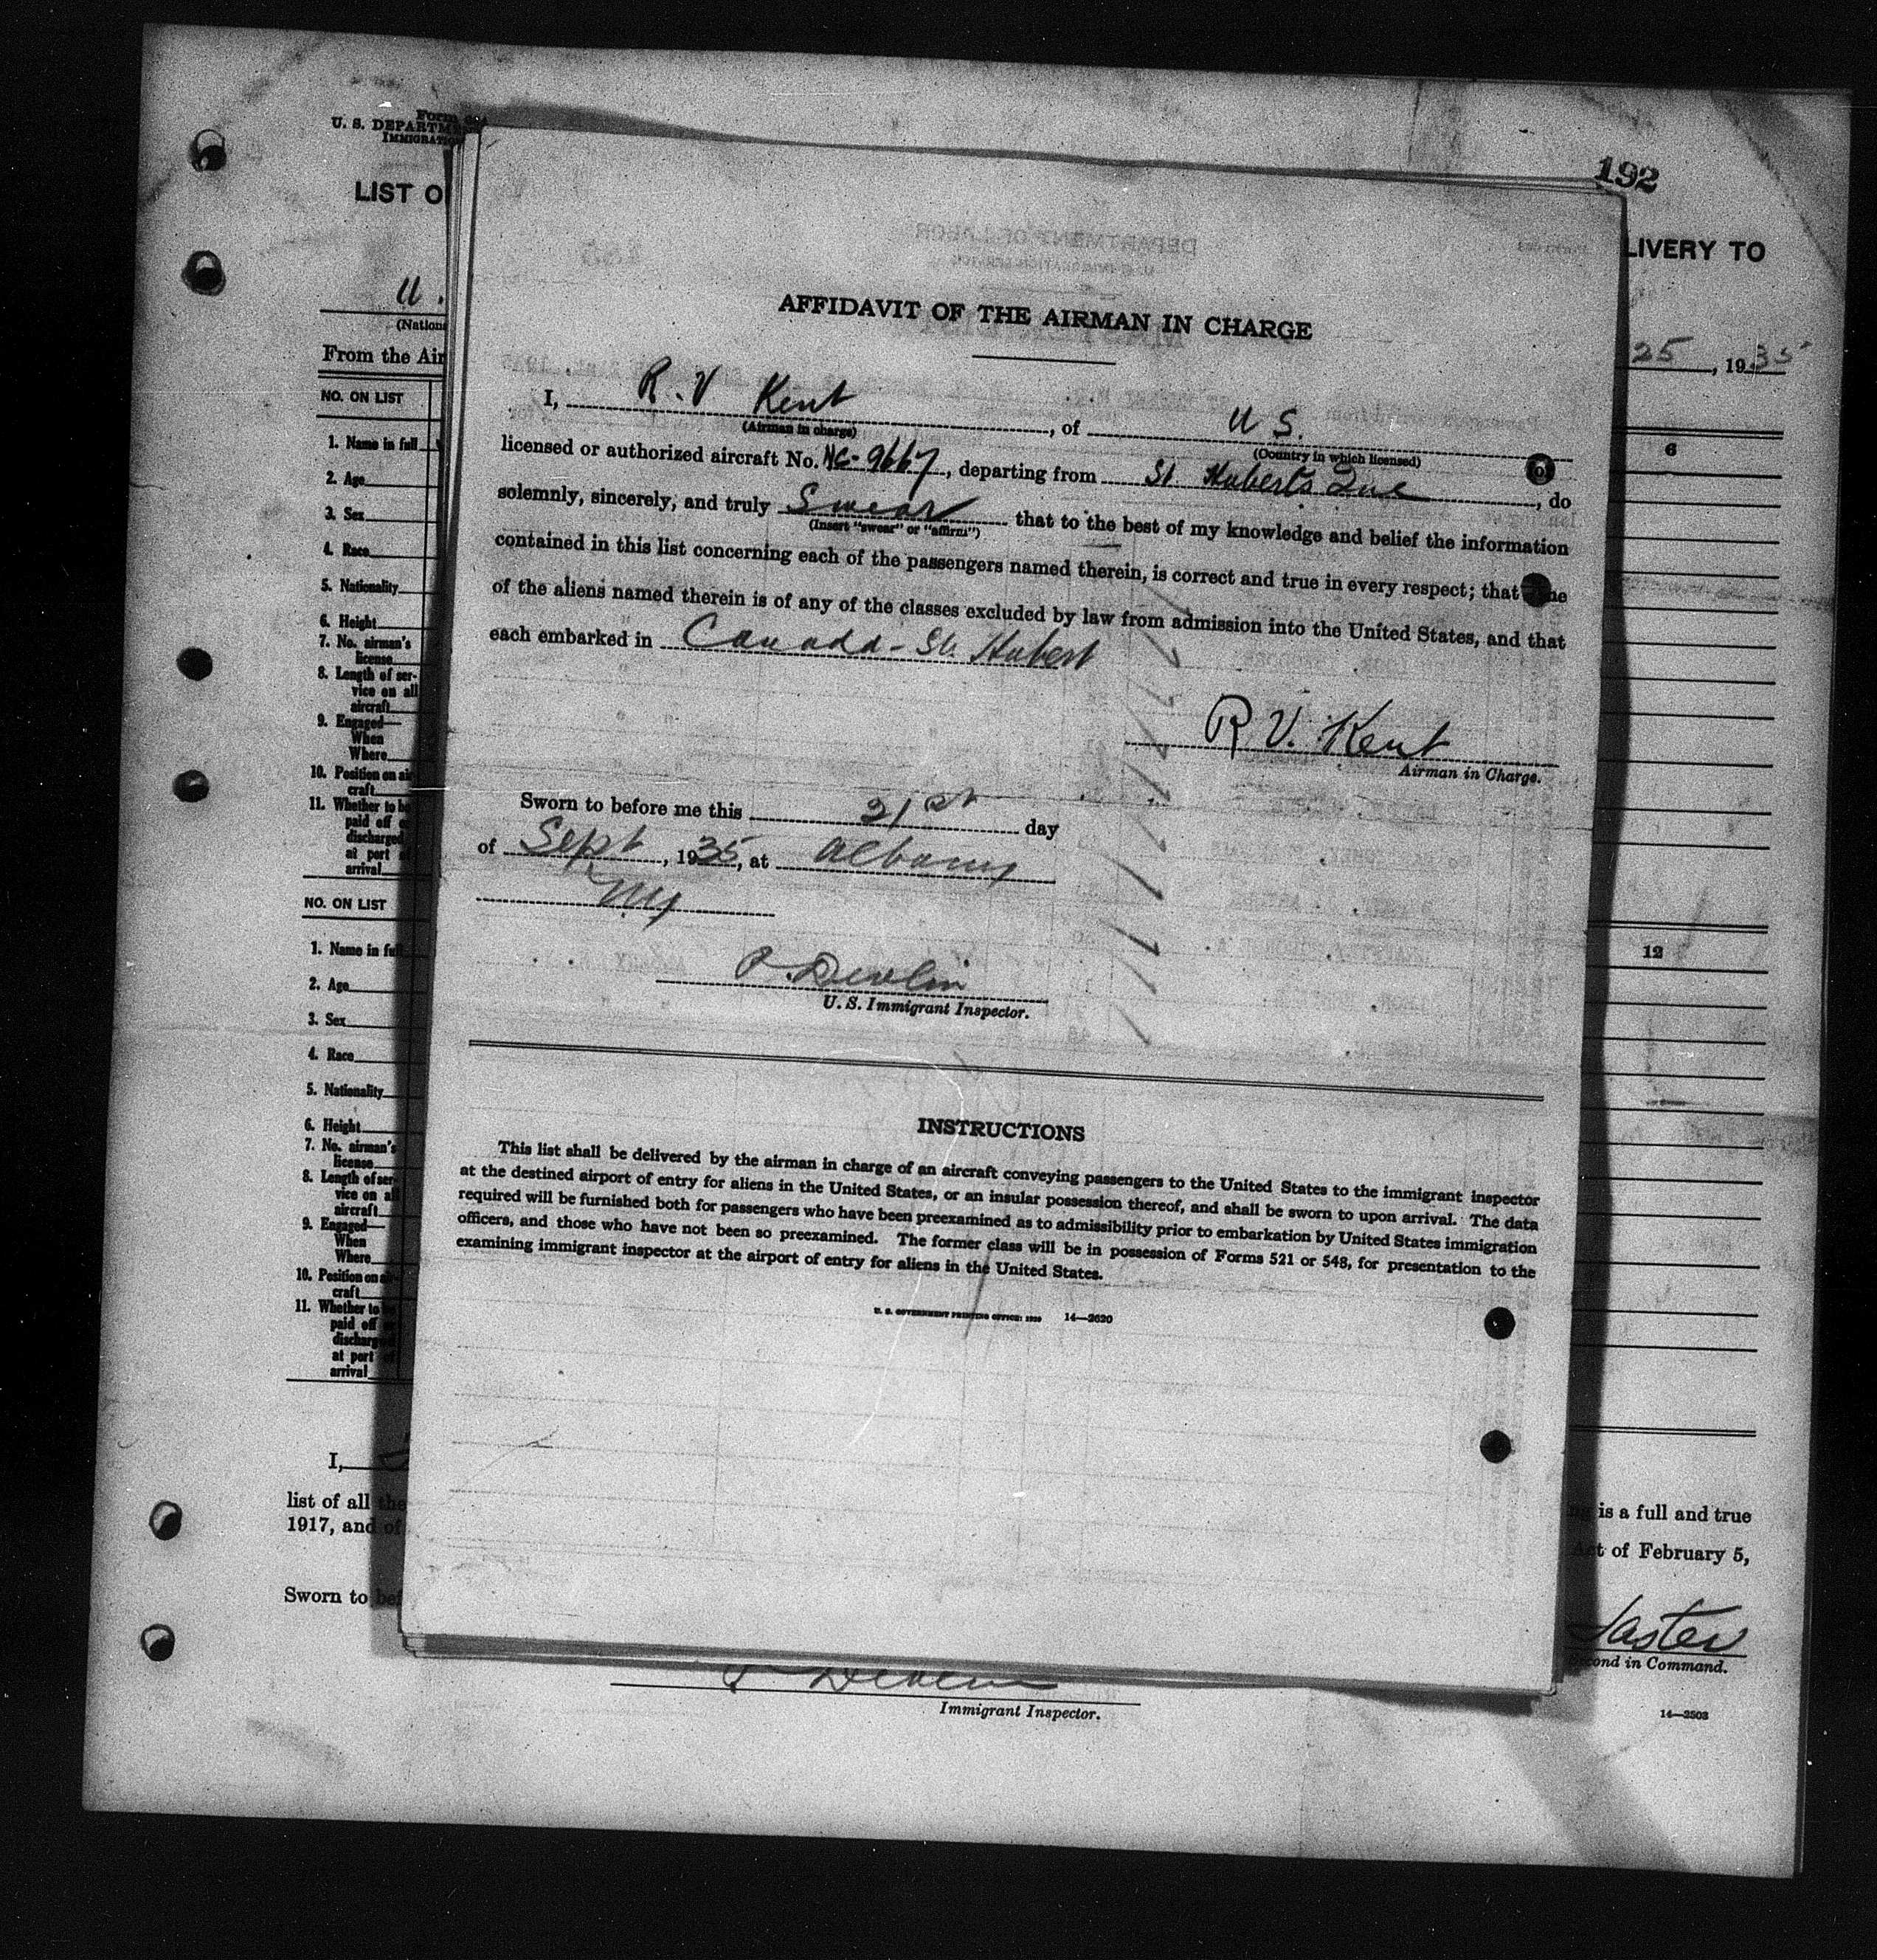 Form
U. S. DEPARTME
IMMIGRATIO
192
LIST O
LIVERY TO
U.
(Nation
25, 1935
From the Air
NO. ON LIST
6
1. Name in full
2. Age
3. Sex
4. Race
5. Nationality
6. Height
7. No. airman's
license
8. Length of ser-
vice on all
aircraft
9. Engaged—
When
Where
10. Position on air
craft
11. Whether to be
paid off o
discharged
at port
arrival
NO. ON LIST
12
1. Name in full
2. Age
3. Sex
4. Race
5. Nationality
6. Height
7. No. airman's
license
8. Length of ser-
vice on all
aircraft
9. Engaged—
When
Where
10. Position on air-
craft
11. Whether to be
paid off
discharged
at port
arrival
AFFIDAVIT OF THE AIRMAN IN CHARGE
I, R. V Kent, of U S.
(Airman in charge)
(Country in which licensed)
licensed or authorized aircraft No. NC-9667, departing from St Huberts Que, do
solemnly, sincerely, and truly Swear that to the best of my knowledge and belief the information
(Insert "swear" or "affirm")
contained in this list concerning each of the passengers named therein, is correct and true in every respect; that none
of the aliens named therein is of any of the classes excluded by law from admission into the United States, and that
each embarked in Canada - St. Hubert
R V. Kent
Airman in Charge.
Sworn to before me this 21st day
of Sept, 1935, at Albany
NY
P. Devlin
U. S. Immigrant Inspector.
INSTRUCTIONS
This list shall be delivered by the airman in charge of an aircraft conveying passengers to the United States to the immigrant inspector
at the destined airport of entry for aliens in the United States, or an insular possession thereof, and shall be sworn to upon arrival. The data
required will be furnished both for passengers who have been preexamined as to admissibility prior to embarkation by United States immigration
officers, and those who have not been so preexamined. The former class will be in possession of Forms 521 or 548, for presentation to the
examining immigrant inspector at the airport of entry for aliens in the United States.
U. S. GOVERNMENT PRINTING OFFICE: 14—2620
I,
list of all the
is a full and true
1917, and of
Act of February 5,
Sworn to bef
Laster
cond in Command.
P Devlin
Immigrant Inspector.
14—2503